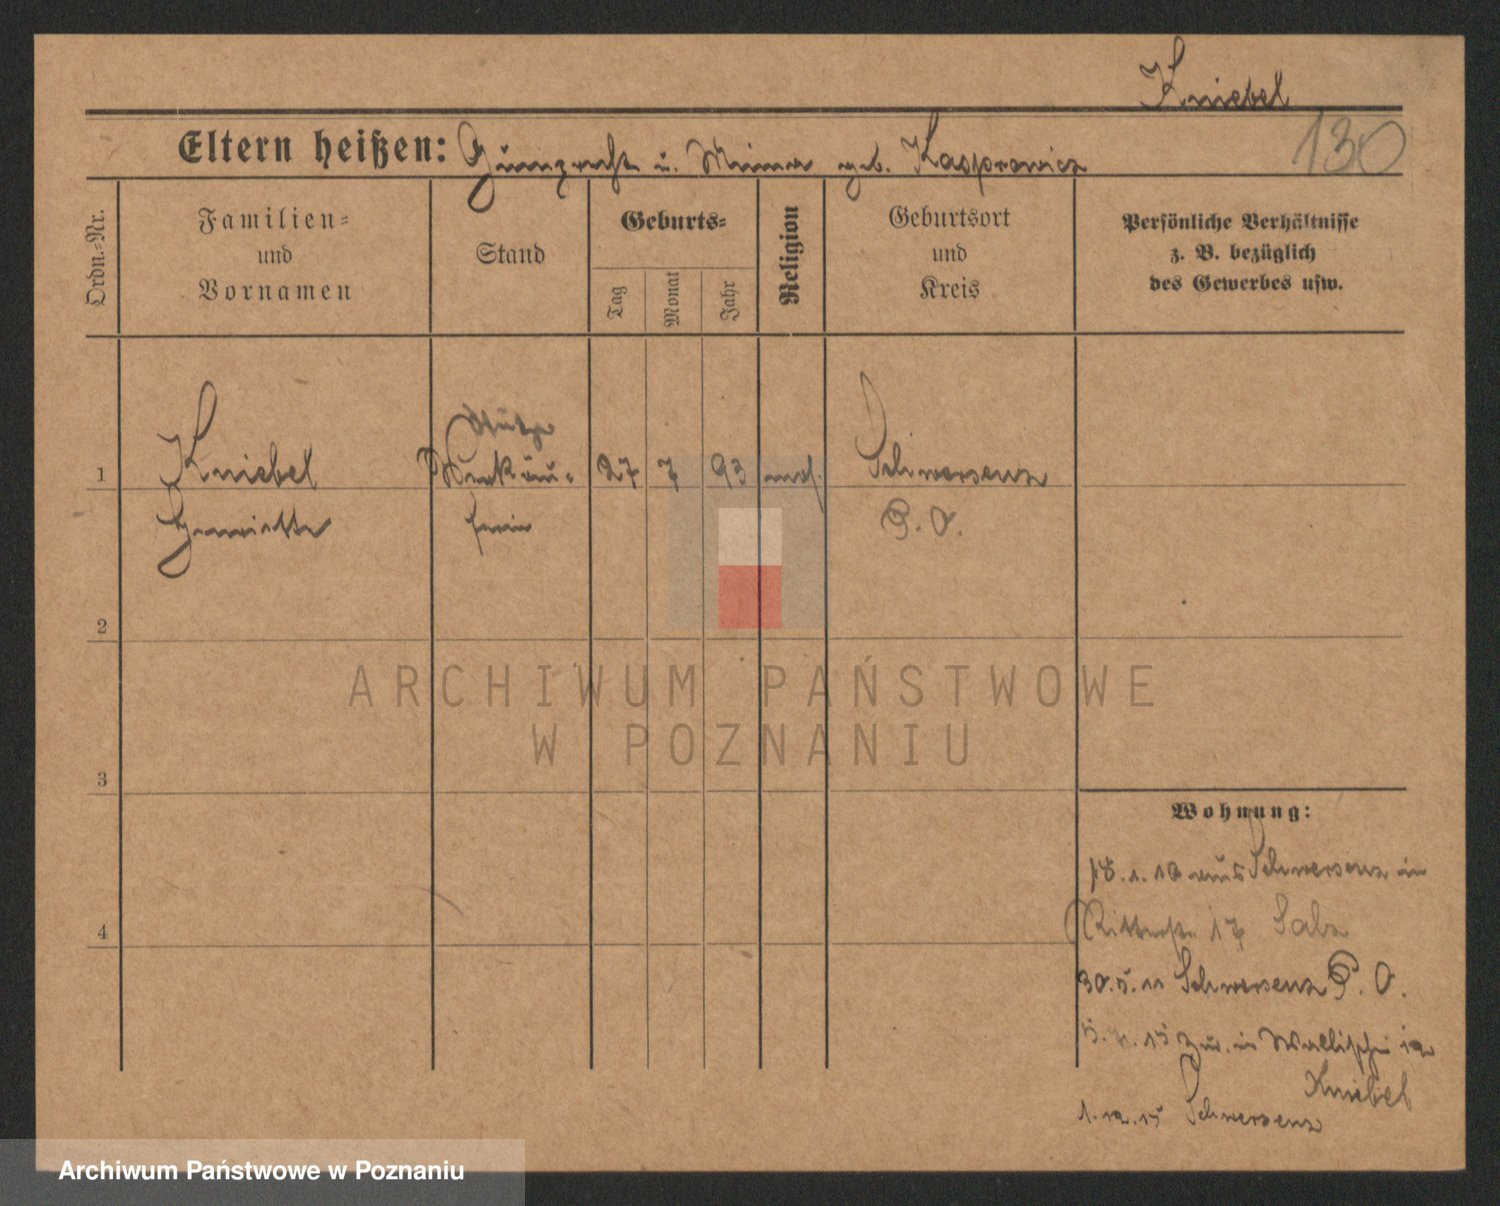 Kniebel
130
Eltern heißen: Gumprecht u. Minna geb. Kasprowicz
Ordn.-Nr.
Familien-
und
Vornamen
Stand
Geburts-
Tag
Monat
Jahr
Religion
Geburtsort
und
Kreis
Persönliche Verhältnisse
z. B. bezüglich
des Gewerbes usw.
Stütze
1 Kniebel Verkäu- 27 7 93 mos. Schwersenz
Henriette ferin P. O.
2
3
4
ARCHIWUM PAŃSTWOWE
W POZNANIU
Wohnung:
18. 1. 10 aus Schwersenz in
Ritterstr. 17
30. 5. 11 Schwersenz P. O.
15 zur. in Wallischei
Kniebel
1. 12. 15 Schwersenz
Archiwum Państwowe w Poznaniu